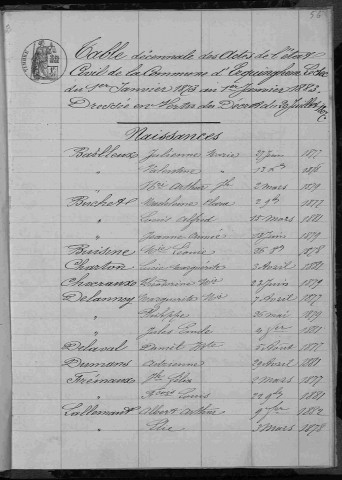 56
Table décennale des Actes de l'état
Civil de la Commune d'Erquinghem Le Sec
du 1er Janvier 1873 au 1er Janvier 1883.
Dressée en Vertu du Décret du 20 Juillet 1807.
Naissances
Bailleux Julienne Marie 27 juin 1877
" Valentine " 13 1876
" Arthur 2 mars 1879
Madeleine Clara 2 9bre 1877
" Louis Alfred 15 mars 1881
" Jeanne Aimée juin 1879
Buisine Louise 26 8bre 1878
Charton Marguerite 3 Avril 1881
Mie 23 juin 1879
Delannoy Marguerite Mie 7 Avril 1877
" Philippe 26 mai 1879
" Jules Emile 1881
Delaval Daniel Bte 1877
Dumans Adrienne 29 Avril 1881
Frémaux Félix 2 mars 1877
" Louis 22 9bre 1881
Lallemant Albert Arthur 9 1882
" Elie 3 mars 1878